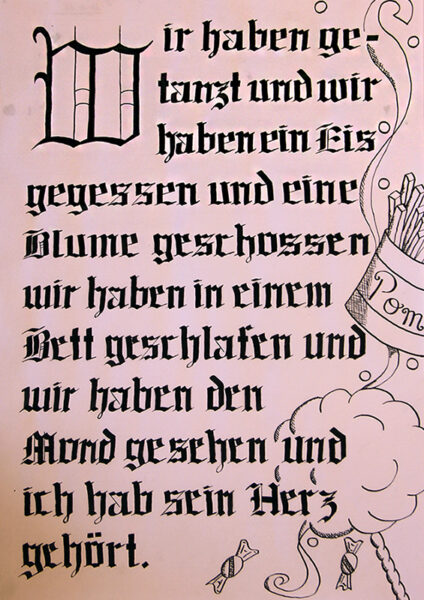 Wir haben ge-
tanzt und wir
haben ein Eis
gegessen und eine
Blume geschossen
wir haben in einem
Bett geschlafen und
wir haben den
Mond gesehen und
ich hab sein Herz
gehört.
Pom